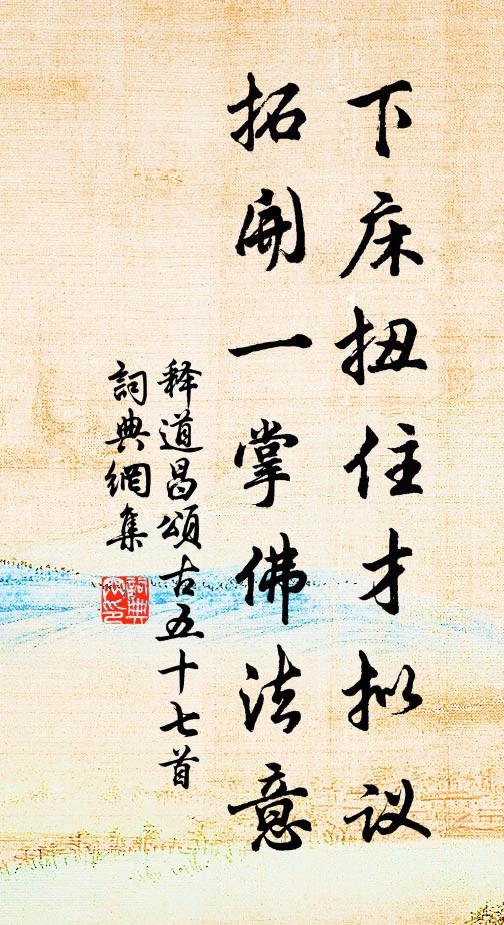 下床扭住才拟议
拓開一掌佛法意
释道昌頌古五十七首
詞典網集